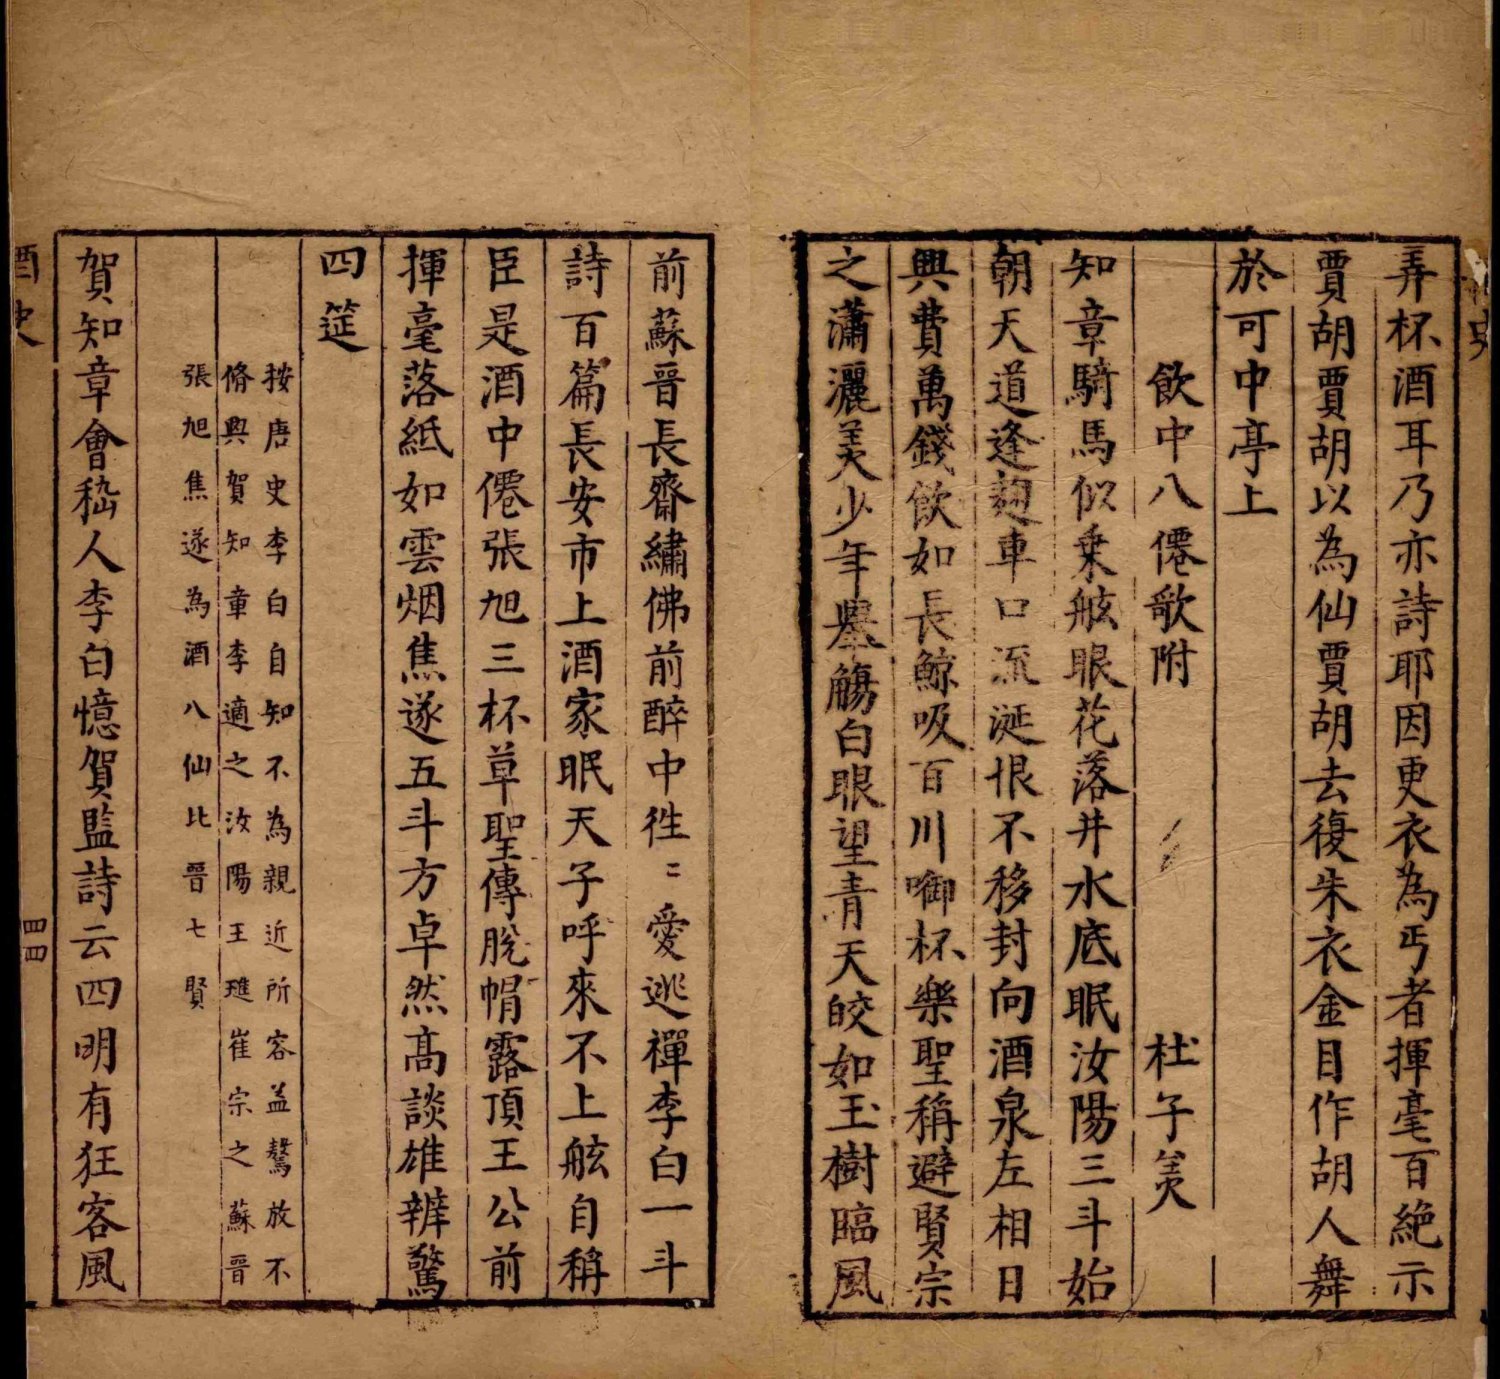 弄杯酒耳乃亦詩耶因更衣為丐者揮毫百絶示
賈胡賈胡以為仙賈胡去復朱衣金目作胡人舞
於可中亭上
飲中八僊歌附 杜子美
知章騎馬似乗舷眼花落井水底眠汝陽三斗始
朝天道逢麹車口流涎恨不移封向酒泉左相日
興費萬錢飲如長鯨吸百川啣杯樂聖稱避賢宗
之瀟灑美少年舉觴白眼望青天皎如玉樹臨風
前蘇晉長齋繡佛前醉中徃〻愛逃禪李白一斗
詩百篇長安市上酒家眠天子呼來不上舷自稱
臣是酒中僊張旭三杯草聖傳脫帽露頂王公前
揮毫落紙如雲烟焦遂五斗方卓然高談雄辨驚
四筵
按唐史李白自知不為親近所容益驁放不
脩與賀知章李適之汝陽王璡崔宗之蘇晉
張旭焦遂為酒八仙比晉七賢
賀知章會嵇人李白憶賀監詩云四明有狂客風
酒史
四四